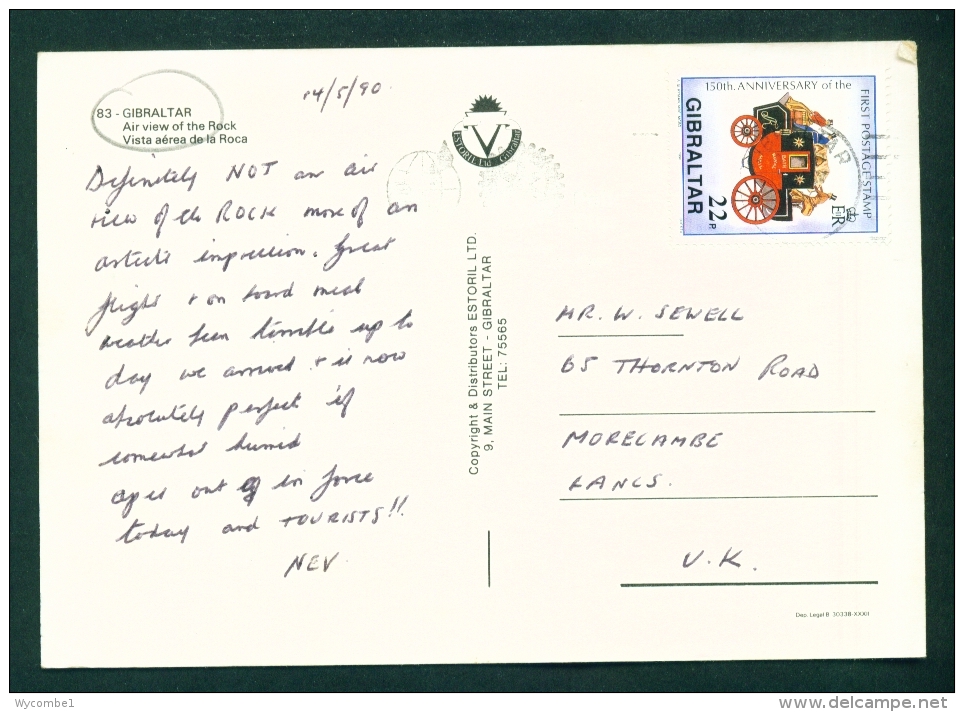 83 - GIBRALTAR
Air view of the Rock
Vista aérea de la Roca
14/5/90
Definitely NOT an air
view of the ROCK more of an
artists impression. Great
flight + on board meal
weather been terrible up to
day we arrived + is now
absolutely perfect if
somewhat humid
apes out in force
today and TOURISTS!!
NEV
V
ESTORIL Ltd. Gibraltar
Copyright & Distributors ESTORIL LTD.
9, MAIN STREET - GIBRALTAR
TEL: 75565
150th. ANNIVERSARY of the
FIRST POSTAGE STAMP
GIBRALTAR
22P.
EIIR
MR. W. SEWELL
65 THORNTON ROAD
MORECAMBE
LANCS.
U.K.
Dep. Legal B 30338-XXXII
Wycombe1
www.delcampe.net